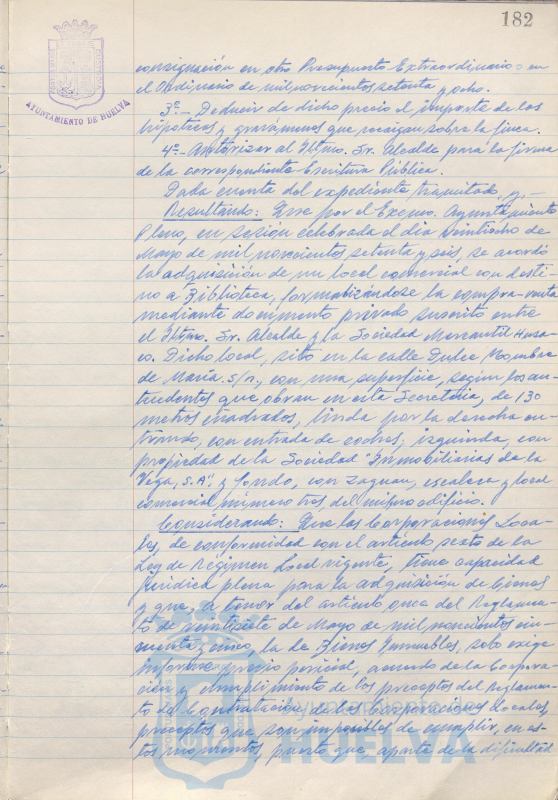 182
AYUNTAMIENTO DE HUELVA
consignación en otro Presupuesto Extraordinario o en
el Ordinario de mil novecientos setenta y ocho.
3º.- Deducir de dicho precio el importe de las
hipotecas y gravámenes que recaigan sobre la finca.
4º.- Autorizar al Iltmo. Sr. Alcalde para la firma
de la correspondiente Escritura Pública.
Dada cuenta del expediente tramitado, y,-
Resultando: Que por el Excmo. Ayuntamiento
Pleno, en sesión celebrada el día veintiocho de
Mayo de mil novecientos setenta y seis, se acordó
la adquisición de un local comercial con desti-
no a Biblioteca, formalizándose la compra-venta
mediante documento privado suscrito entre
el Iltmo. Sr. Alcalde y la Sociedad Mercantil
Dicho local, sito en la calle Dulce Nombre
de María s/n, con una superficie, según los an-
tecedentes que obran en esta Secretaría, de 130
metros cuadrados, linda por la derecha en-
trando, con entrada de coches, izquierda, con
propiedad de la Sociedad "Inmobiliarias de la
Vega, S.A", y fondo, con zaguán, escalera y local
comercial número tres del mismo edificio.
Considerando: Que las Corporaciones Loca-
les, de conformidad con el artículo sexto de la
Ley de Régimen Local vigente, tiene capacidad
jurídica plena para la adquisición de bienes
y que, a tenor del artículo once del Reglamen-
to de veintisiete de Mayo de mil novecientos cin-
cuenta y cinco, la de Bienes Inmuebles, sólo exige
informe previo pericial, acuerdo de la Corpora-
ción y cumplimiento de los preceptos del Reglamen-
to de Contratación de las Corporaciones Locales,
preceptos que son imposibles de cumplir, en es-
tos momentos, puesto que aparte de la dificultad
HUELVA